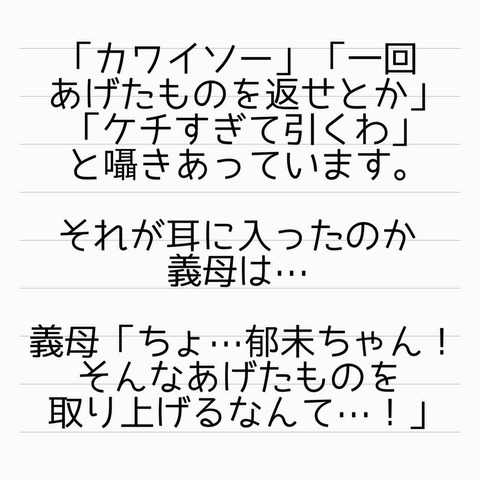 「カワイソー」「一回
あげたものを返せとか」
「ケチすぎて引くわ」
と囁きあっています。
それが耳に入ったのか
義母は…
義母「ちょ…郁未ちゃん！
そんなあげたものを
取り上げるなんて…！」